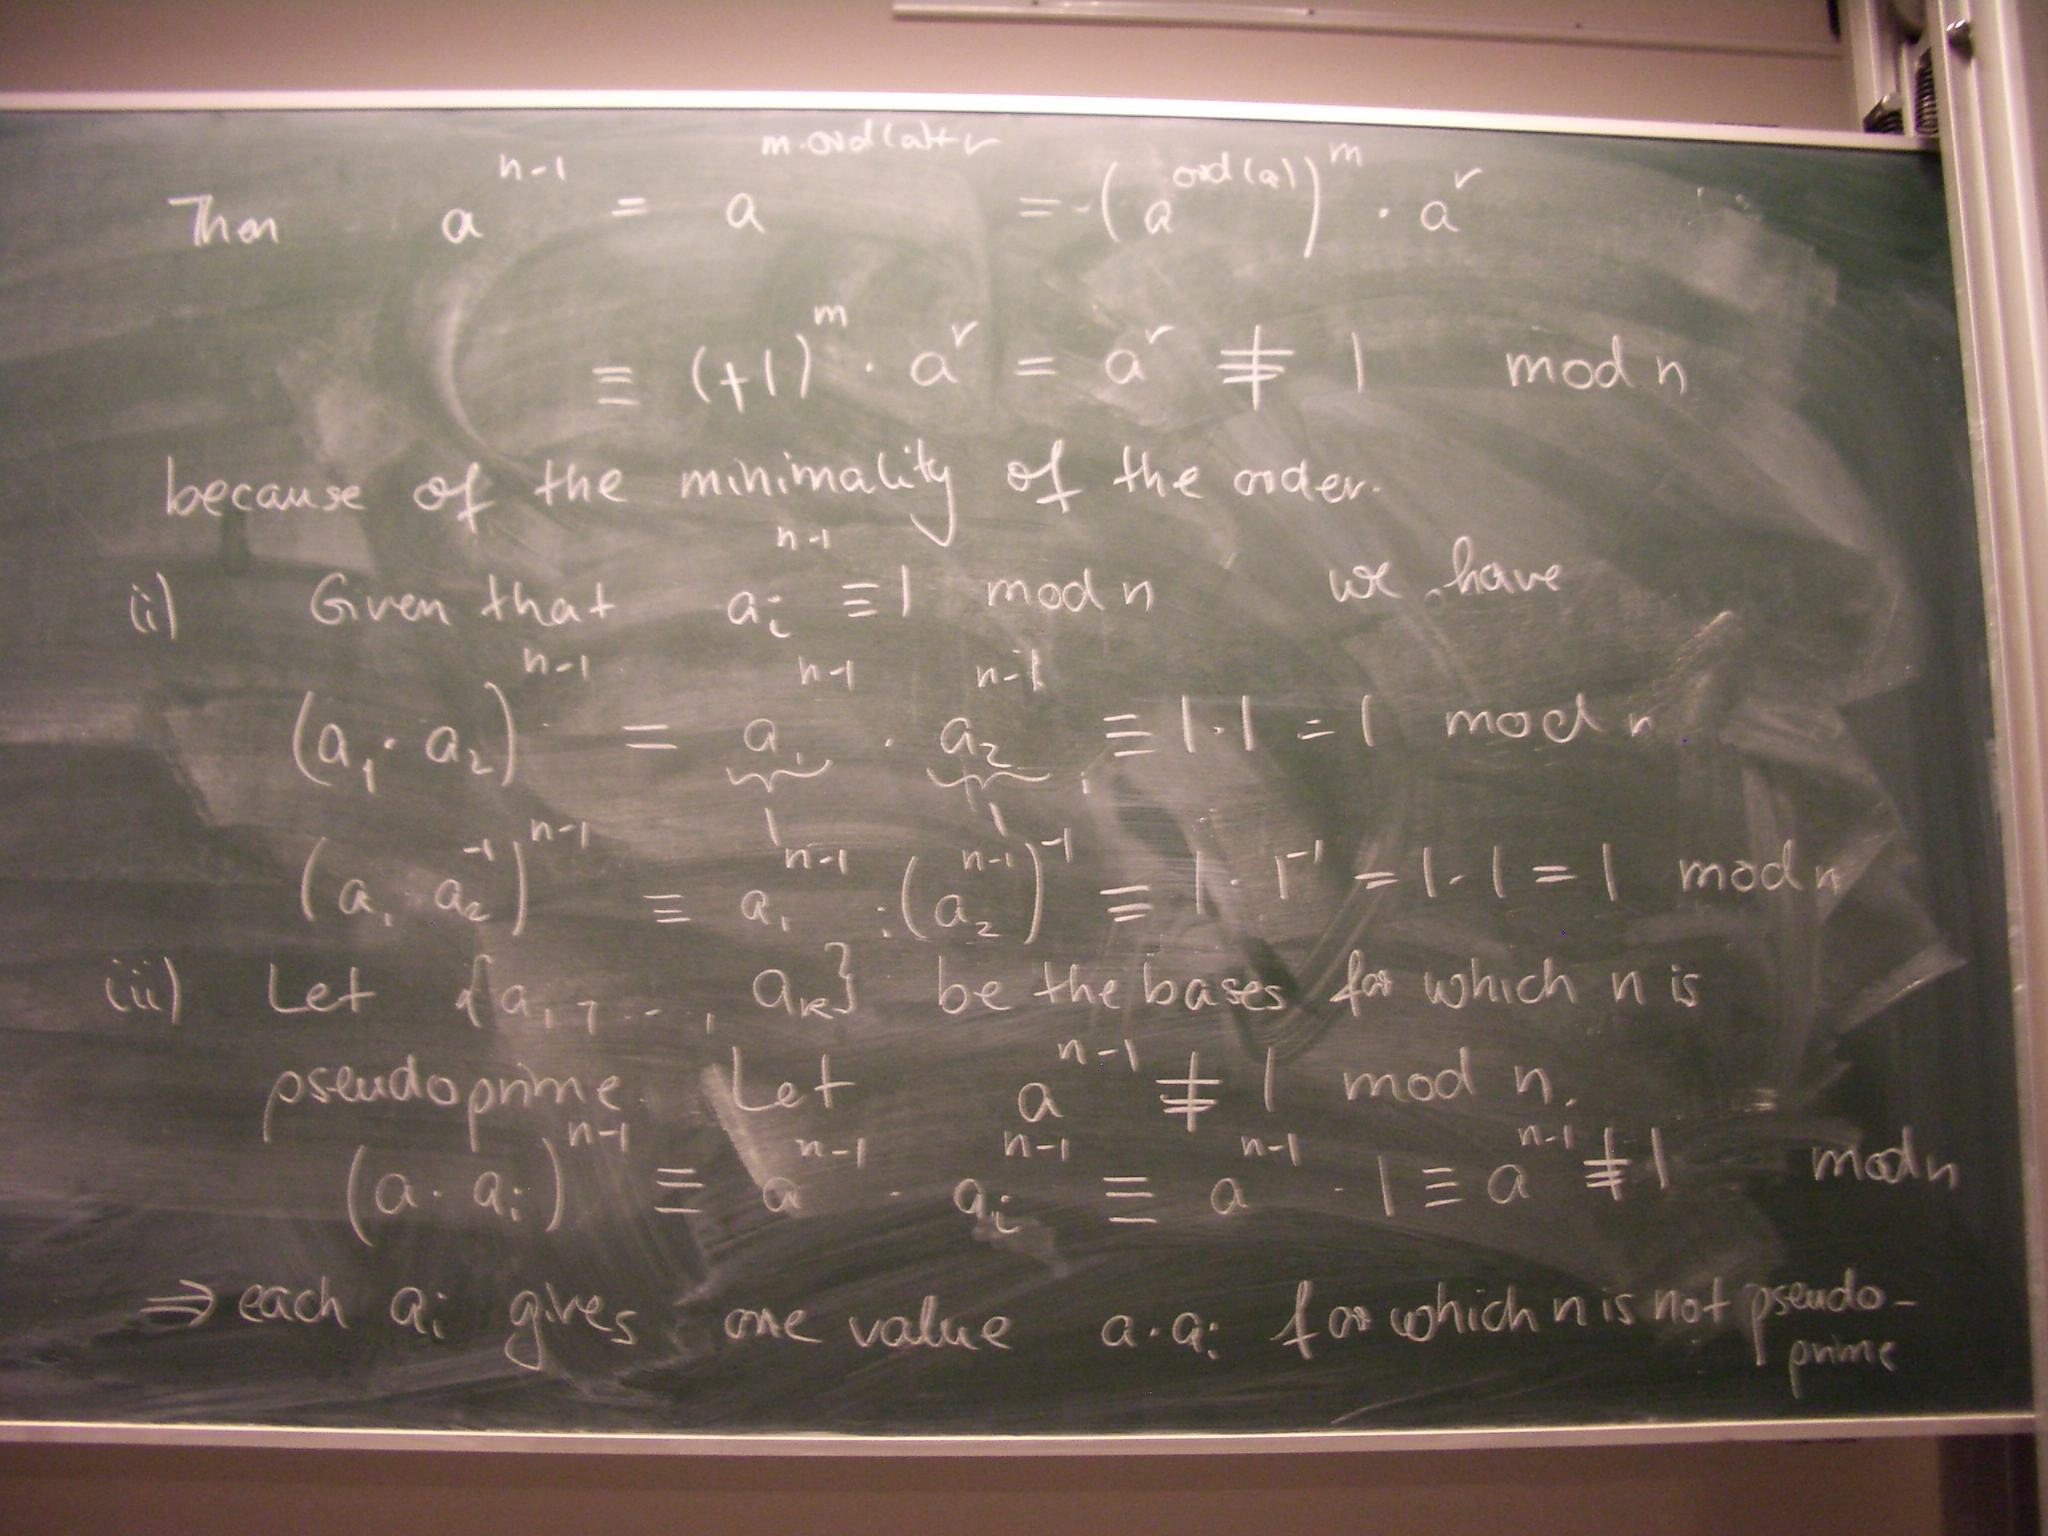 Then a^{n-1} = a^{m·ord(a)+r} = (a^{ord(a)})^m · a^r
≡ (+1)^m · a^r = a^r ≢ 1 mod n
because of the minimality of the order.
(ii) Given that a_i^{n-1} ≡ 1 mod n we have
(a_1 · a_2)^{n-1} = a_1^{n-1} · a_2^{n-1} ≡ 1·1 = 1 mod n
1 1
(a_1 · a_2^{-1})^{n-1} ≡ a_1^{n-1} · (a_2^{n-1})^{-1} ≡ 1 · 1^{-1} = 1 · 1 = 1 mod n
(iii) Let {a_1, ..., a_k} be the bases for which n is
pseudoprime. Let a^{n-1} ≢ 1 mod n.
(a · a_i)^{n-1} ≡ a^{n-1} · a_i^{n-1} ≡ a^{n-1} · 1 ≡ a^{n-1} ≢ 1 mod n
⇒ each a_i gives one value a·a_i for which n is not pseudo-
prime